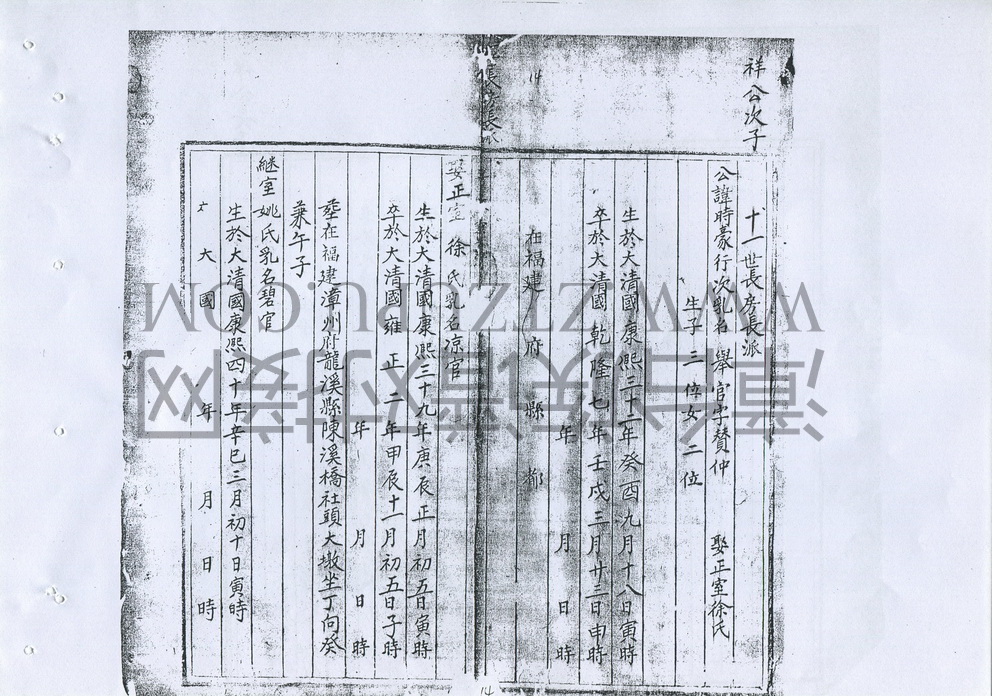 祥公次子
十一世長房長派
公諱時豪行次乳名舉官字贊仲 娶正室徐氏
生子三位女二位
生於大清國康熙三十二年癸酉九月十八日寅時
卒於大清國乾隆七年壬戌三月廿三日申時
年 月 日 時
在福建 府 縣 鄉
14
娶正室徐氏乳名凉官
生於大清國康熙三十九年庚辰正月初五日寅時
卒於大清國雍正二年甲辰十一月初五日子時
年 月 日 時
塟在福建漳州府龍溪縣陳溪橋社頭大墩坐丁向癸
兼午子
継室姚氏乳名碧官
生於大清國康熙四十年辛巳三月初十日寅時
大 國 年 月 日 時
14
WWW.ZTZUPU.COM